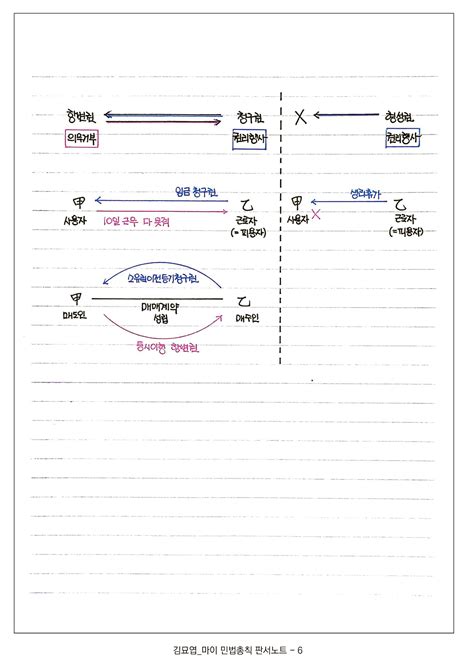 항변권 청구권 X 형성권
의무거부 권리행사 권리행사
甲 임금 청구권 乙 甲 생리휴가 乙
사용자 10일 근무 다 못줘 근로자 사용자 X 근로자
(=피용자) (=피용자)
소유권이전등기청구권
甲 매매계약 乙
매도인 성립 매수인
동시이행 항변권
김묘엽_마이 민법총칙 판서노트 - 6